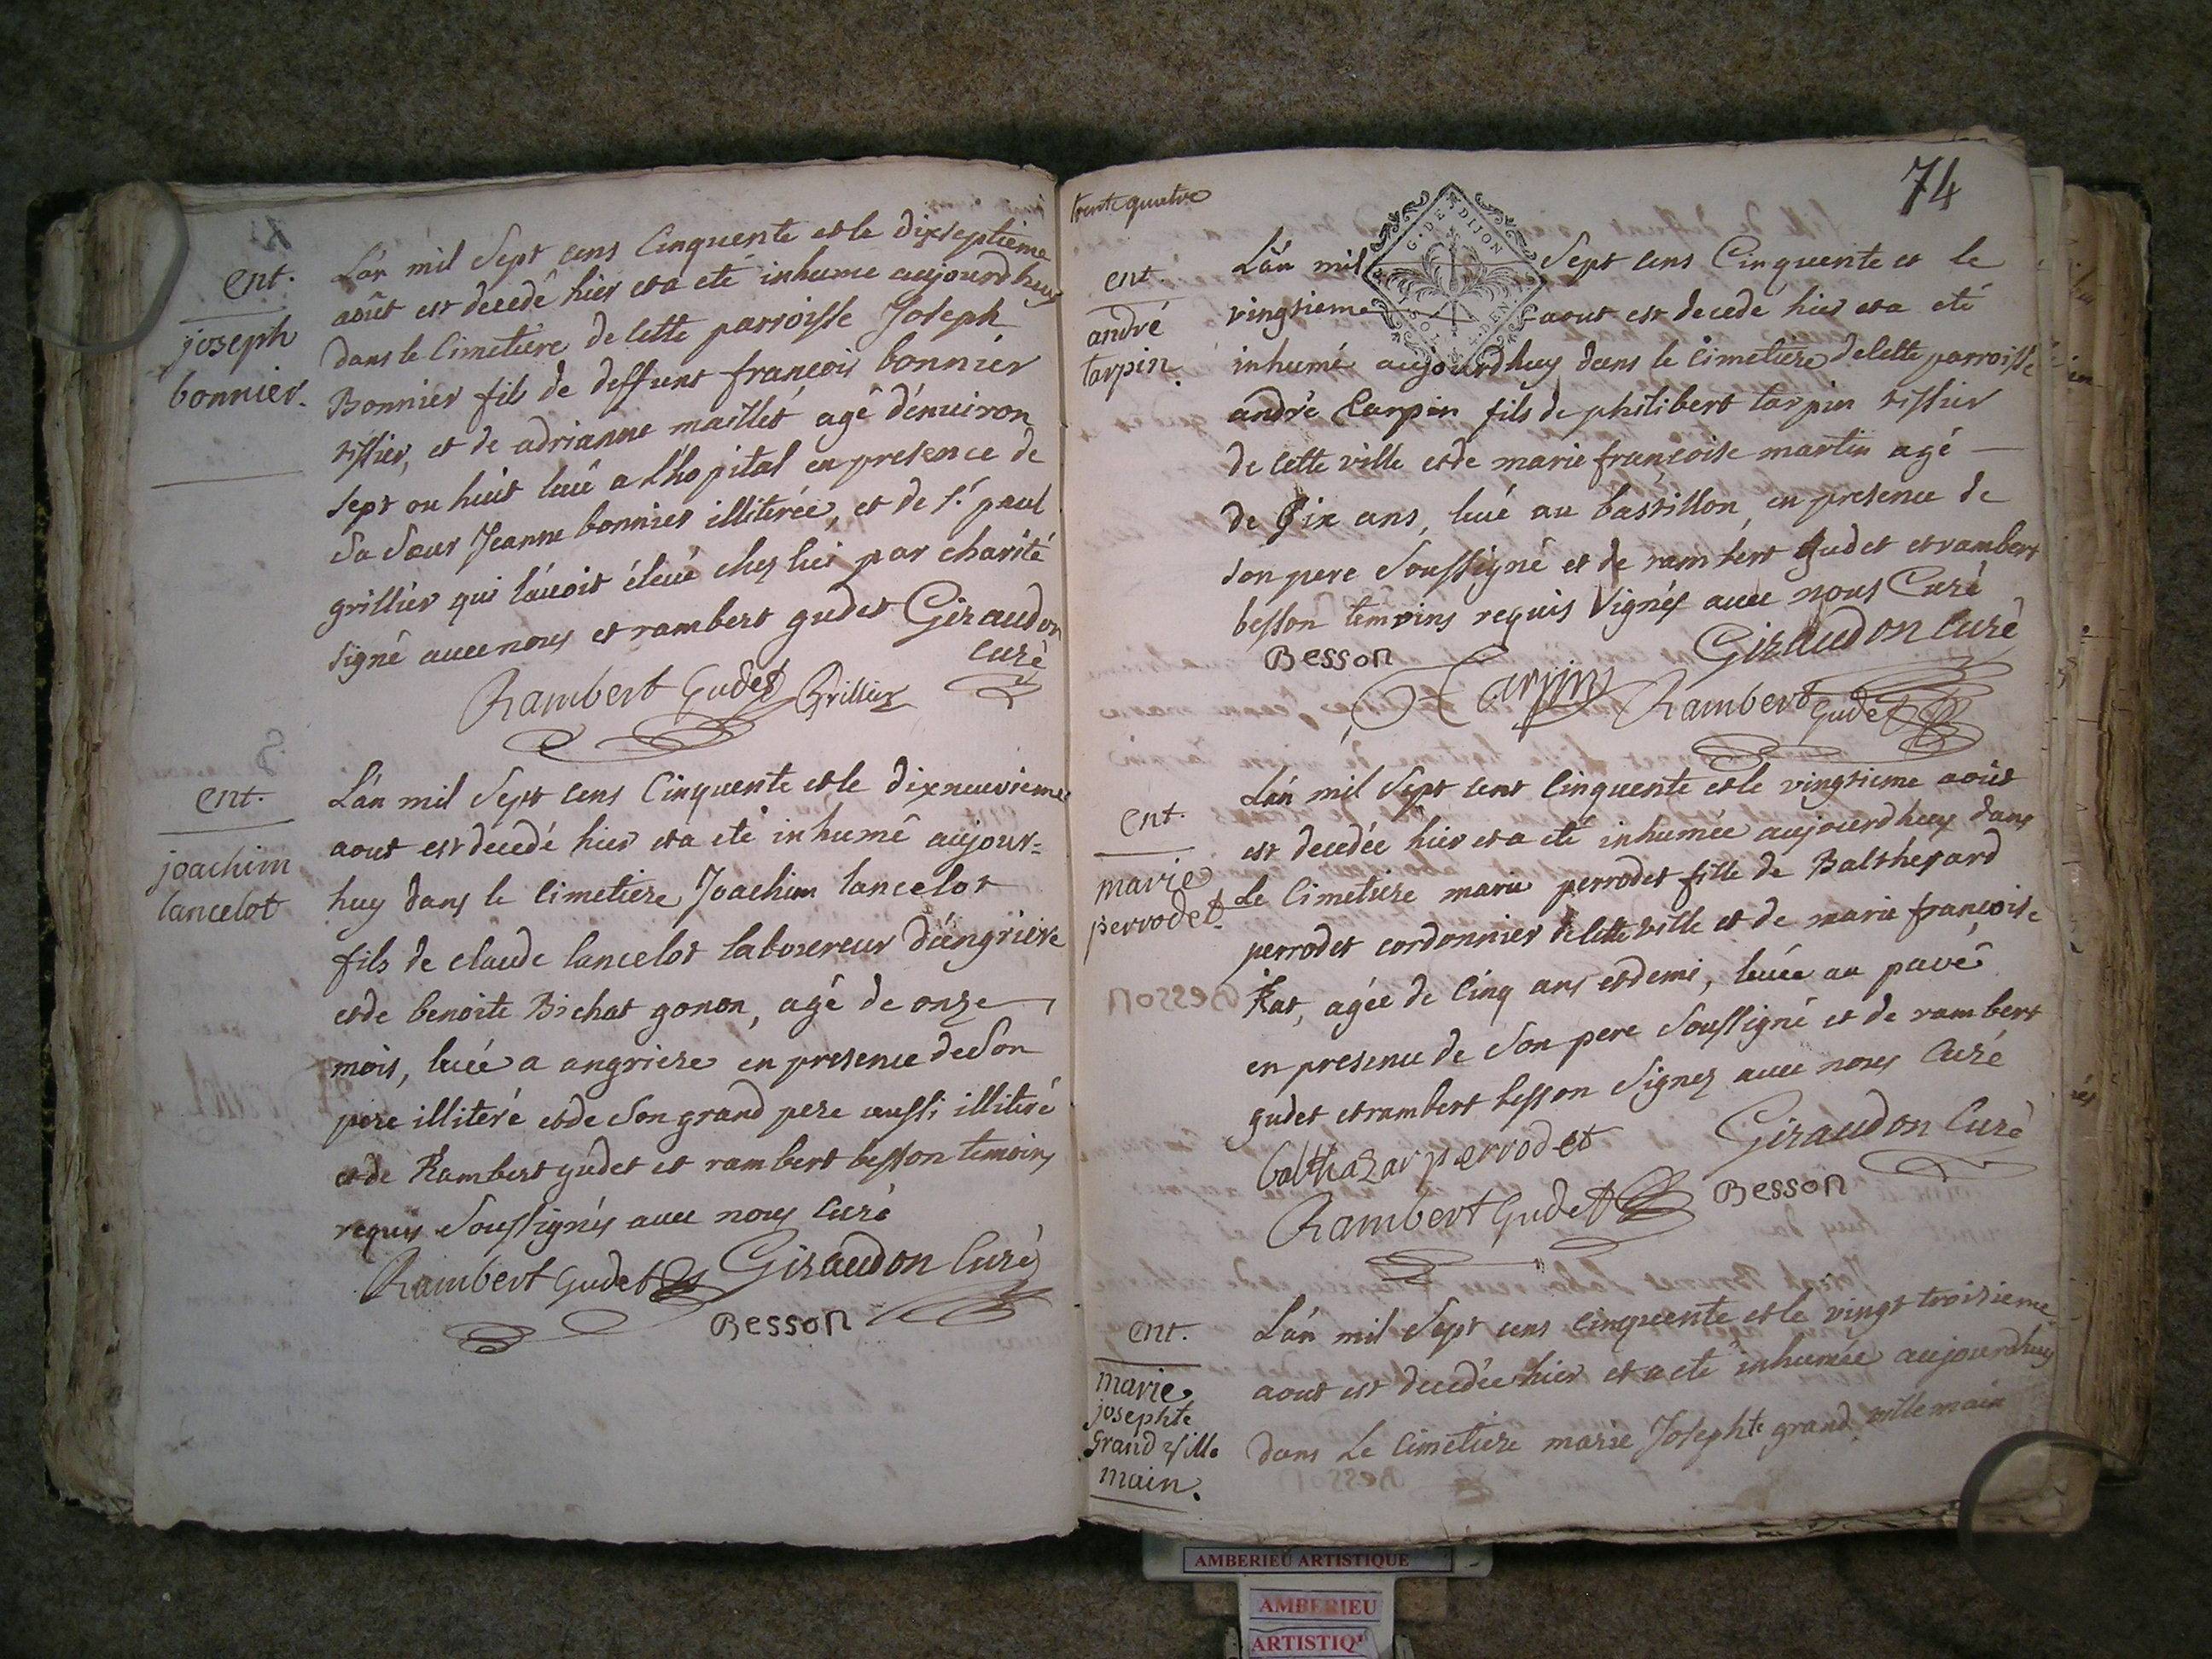 ent.
joseph
bonnier.
L'an mil Sept cens Cinquente et le dixseptieme
août est decedé hier et a eté inhume aujourdhuy
dans le Cimetiere de cette parroisse Joseph
Bonnier fils de deffunt francois bonnier
tissier, et de adrianne maillet agé d'enuiron
sept ou huit leué a l'hopital en presence de
Sa Sœur Jeanne bonnier illiterée, et de Sr. paul
grillier qui l'auoit éleué ches lui par charité
signé auec nous et rambert gudet Giraudon
curé
Rambert Gudet Grillier
ent.
joachim
lancelot
L'an mil Sept cens Cinquente et le dixneuvieme
aout est decedé hier et a eté inhumé aujour=
huy dans le Cimetiere Joachim lancelot
fils de claude lancelot laboureur d'angriere
et de benoite Bichat gonon, agé de onze
mois, leué a angriere en presence de Son
pere illiteré et de Son grand pere aussi illiteré
et de Rambert gudet et rambert besson temoins
requis Soussignés auec nous Curé
Rambert Gudet Giraudon Curé
Besson
trente quatre
74
G. D. E DIJON
ent.
andré
tarpin.
L'an mil Sept cens Cinquente et le
vingtieme aout est decede hier et a eté
inhumé aujourdhuy dans le Cimetiere de cette parroisse
andré tarpin fils de philibert tarpin tissier
de cette ville et de marie françoise martin agé
de Six ans, leué au bastillon, en presence de
Son pere Soussigné et de rambert gudet et rambert
besson temoins requis Signés auec nous Curé
Besson Giraudon Curé
Tarpin Rambert Gudet
ent.
marie
perrodet.
L'an mil Sept cent Cinquente et le vingtieme août
est decedée hier et a eté inhumée aujourdhuy dans
Le Cimetiere marie perrodet fille de Balthesard
perrodet cordonnier de cette ville et de marie françoise
Rat, agée de Cinq ans et demi, leuée au pavé
en presence de Son pere Soussigné et de rambert
gudet et rambert besson Signez auec nous Curé
balthazar perrodet Giraudon Curé
Rambert Gudet Besson
ent.
marie
josephte
Grand ville
main.
L'an mil Sept cens cinquente et le vingt troisieme
aout est decedée hier et a eté inhumée aujourdhuy
dans Le Cimetiere marie Josephte grand villemain
AMBERIEU ARTISTIQUE
AMBERIEU
ARTISTIQ